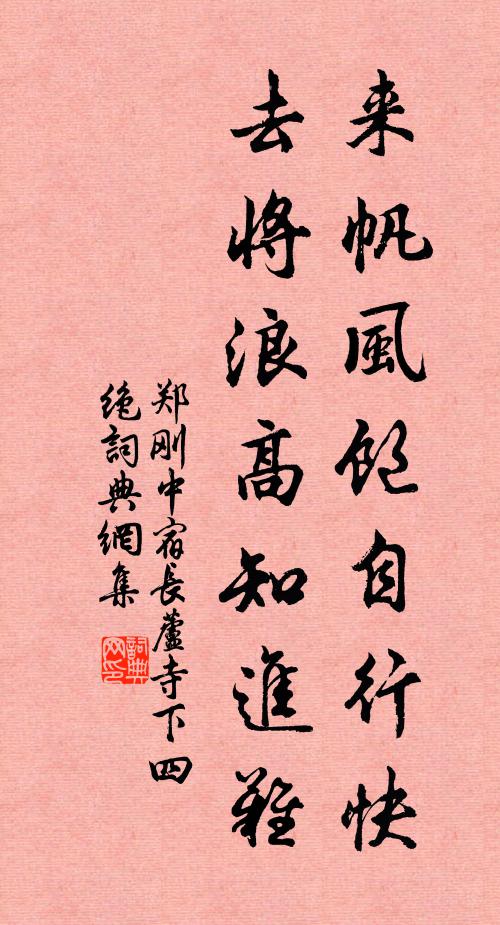 来帆風飽自行快
去將浪高知進難
郑刚中宿長蘆寺下四
絶詞典網集
詞典网印